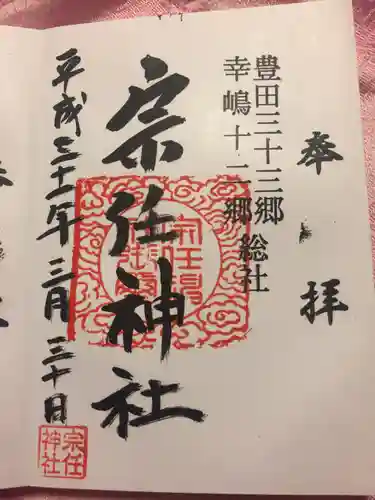 奉拝
豊田三十三郷
幸嶋十二郷総社
宗任神社
平成三十一年三月三十日
宗任
神社